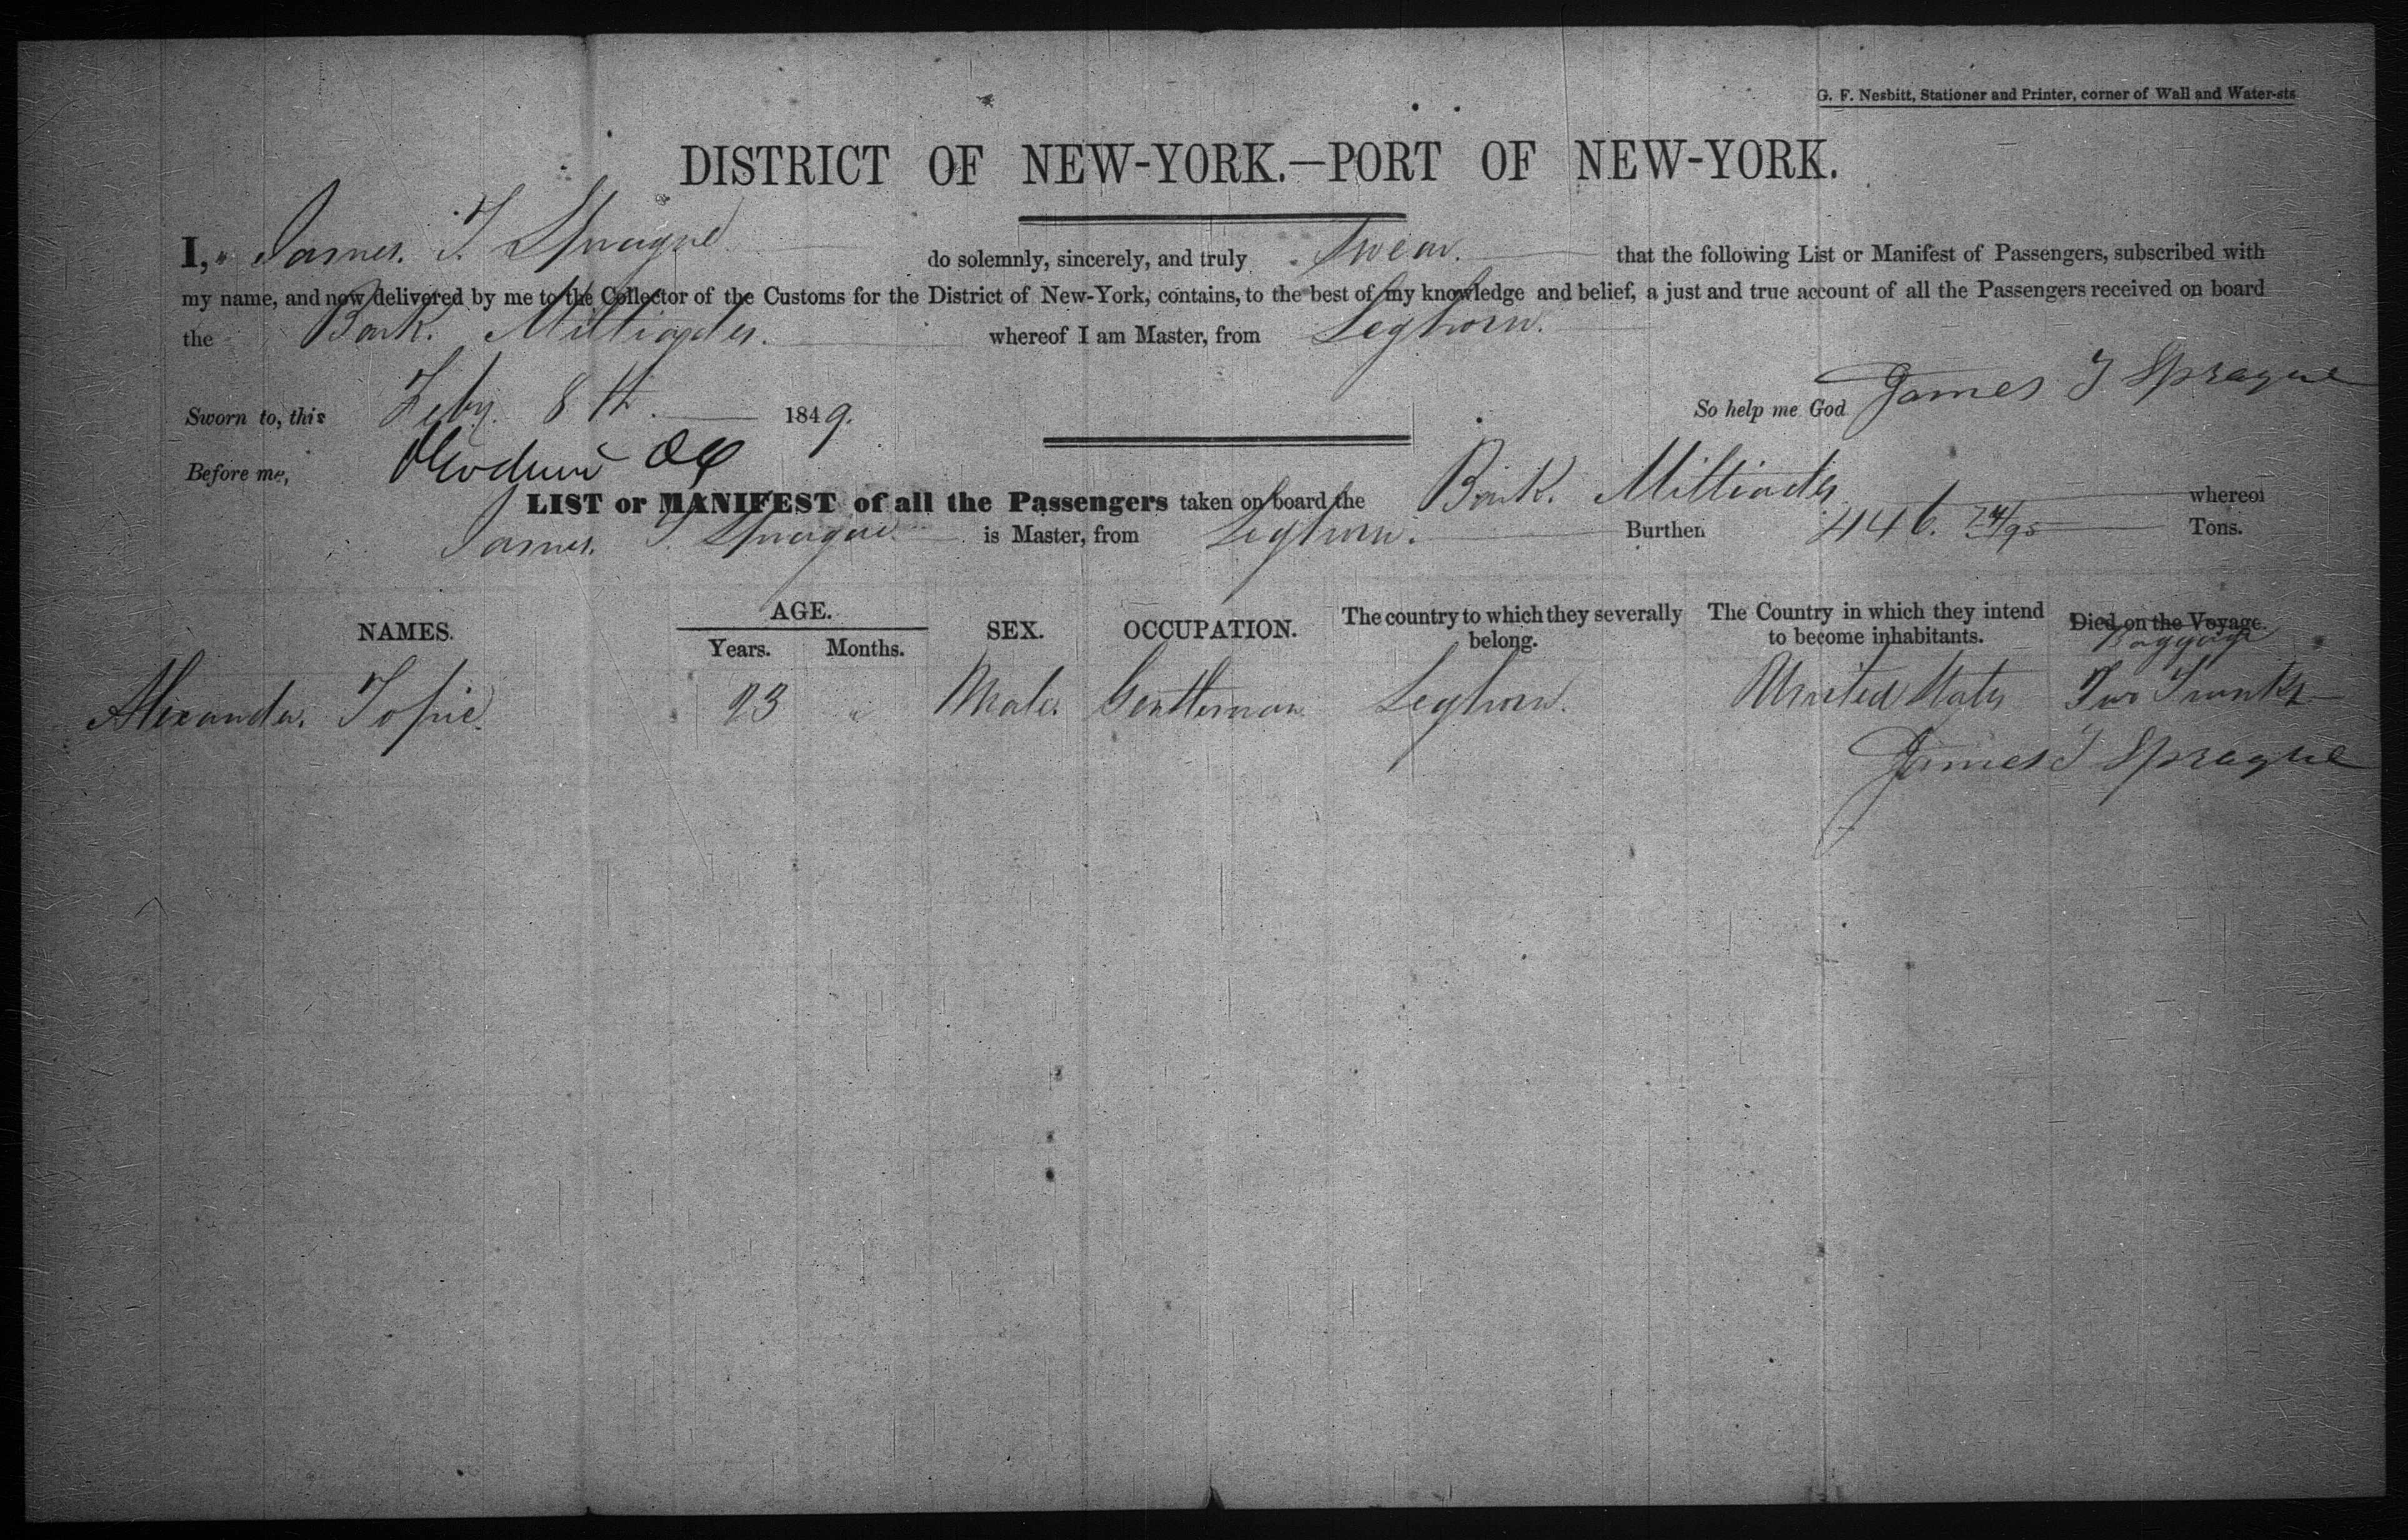 G. F. Nesbitt, Stationer and Printer, corner of Wall and Water-sts
DISTRICT OF NEW-YORK.—PORT OF NEW-YORK.
I, James. T. Sprague do solemnly, sincerely, and truly Swear. that the following List or Manifest of Passengers, subscribed with
my name, and now delivered by me to the Collector of the Customs for the District of New-York, contains, to the best of my knowledge and belief, a just and true account of all the Passengers received on board
the Bark. Miltiades. whereof I am Master, from Leghorn.
Sworn to, this Feby. 8th. 1849. So help me God James T Sprague
Before me,
LIST or MANIFEST of all the Passengers taken on board the Bark. Miltiades whereof
James. T. Sprague is Master, from Leghorn. Burthen 446. 74/95 Tons.
NAMES. AGE. Years. Months. SEX. OCCUPATION. The country to which they severally belong. The Country in which they intend to become inhabitants. Died on the Voyage. Baggage
Alexander. 23 " Male. Gentleman. Leghorn. United States Two Trunks
James T Sprague